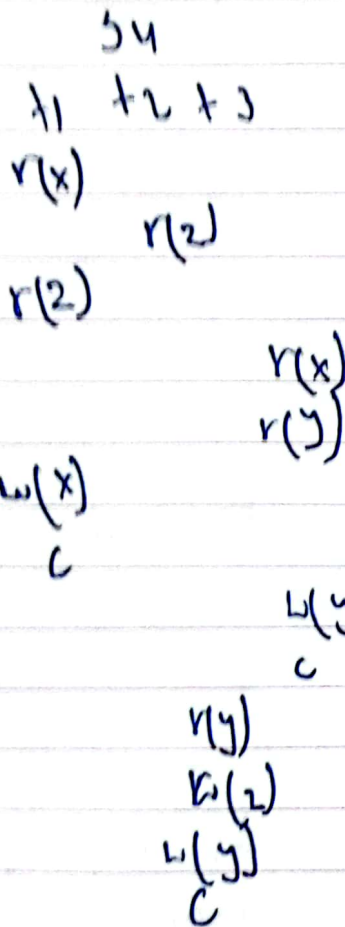 S4
t1 t2 t3
r(x)
r(z)
r(z)
r(x)
r(y)
w(x)
c
w(y
c
r(y)
w(z)
w(y)
c